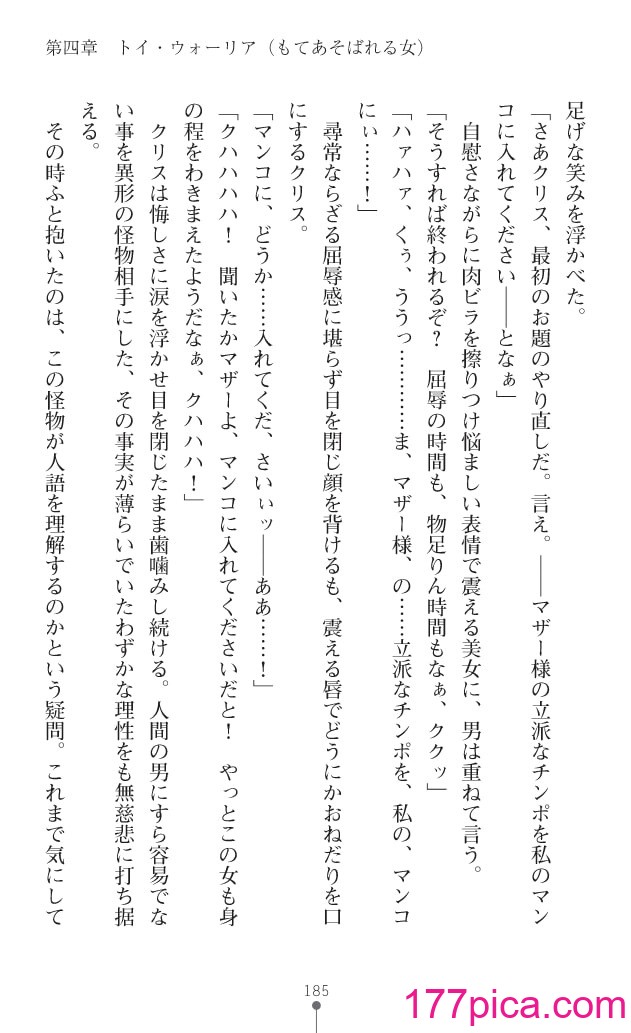 第四章　トイ・ウォーリア（もてあそばれる女）
足げな笑みを浮かべた。
「さあクリス、最初のお題のやり直しだ。言え。――マザー様の立派なチンポを私のマン
コに入れてください――となぁ」
　自慰さながらに肉ビラを擦りつけ悩ましい表情で震える美女に、男は重ねて言う。
「そうすれば終われるぞ？　屈辱の時間も、物足りん時間もなぁ、ククッ」
「ハァハァ、くぅ、ううっ…………ま、マザー様、の……立派なチンポを、私の、マンコ
にぃ……！」
　尋常ならざる屈辱感に堪らず目を閉じ顔を背けるも、震える唇でどうにかおねだりを口
にするクリス。
「マンコに、どうか……入れてくだ、さいぃッ――ああ……！」
「クハハハハ！　聞いたかマザーよ、マンコに入れてくださいだと！　やっとこの女も身
の程をわきまえたようだなぁ、クハハハ！」
　クリスは悔しさに涙を浮かせ目を閉じたまま歯噛みし続ける。人間の男にすら容易でな
い事を異形の怪物相手にした、その事実が薄らいでいたわずかな理性をも無慈悲に打ち据
える。
　その時ふと抱いたのは、この怪物が人語を理解するのかという疑問。これまで気にして
185
177pica.com